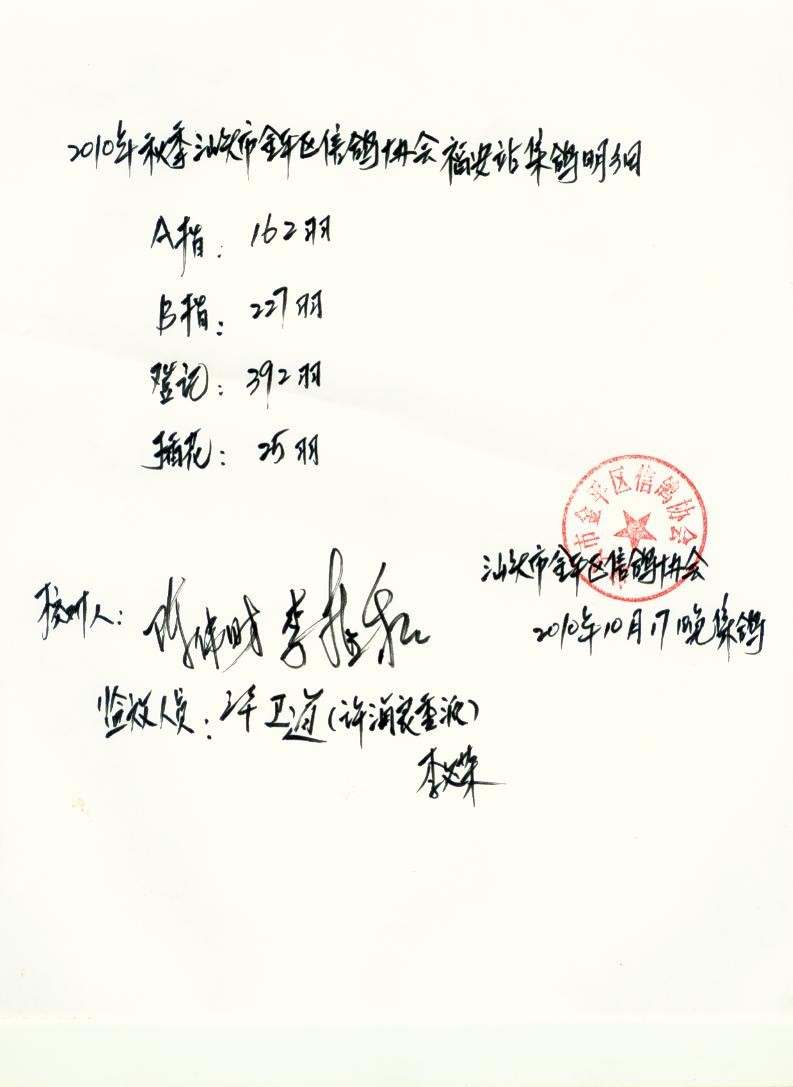 2010年秋季汕头市金平区信鸽协会福安站集鸽明细
A指：162羽
B指：227羽
登记：392羽
插花：25羽
市金平区信鸽协会
汕头市金平区信鸽协会
核对人：
2010年10月17日晚集鸽
监放人员：卫道(许
李